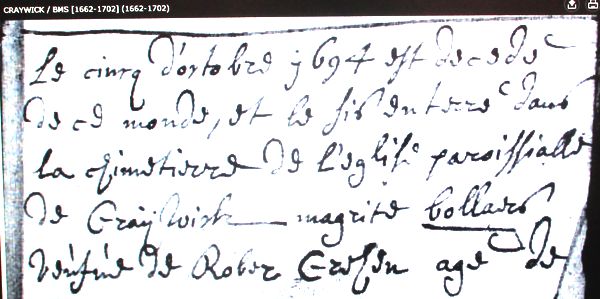 CRAYWICK / BMS [1662-1702] (1662-1702)
Le cinq d'octobre j694 est decede
de ce monde, et le sis enterre dans
la chimetierre de l'eglise paroissialle
de Craywick magrite bollaers
veufue de Rober age de